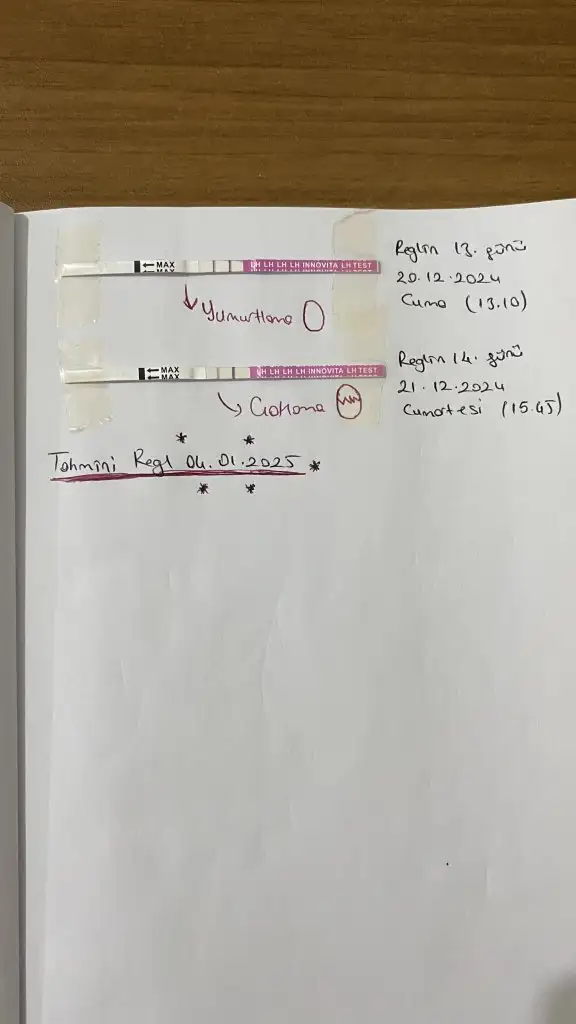 ← MAX
MAX
LH LH LH LH INNOVITA LH TEST
Reglin 13. günü
20.12.2024
Cuma (13.10)
Yumurtlama
← MAX
← MAX
LH LH LH LH INNOVITA LH TEST
Reglin 14. günü
21.12.2024
Cumartesi (15.45)
Çatlama
Tahmini Regl 04.01.2025